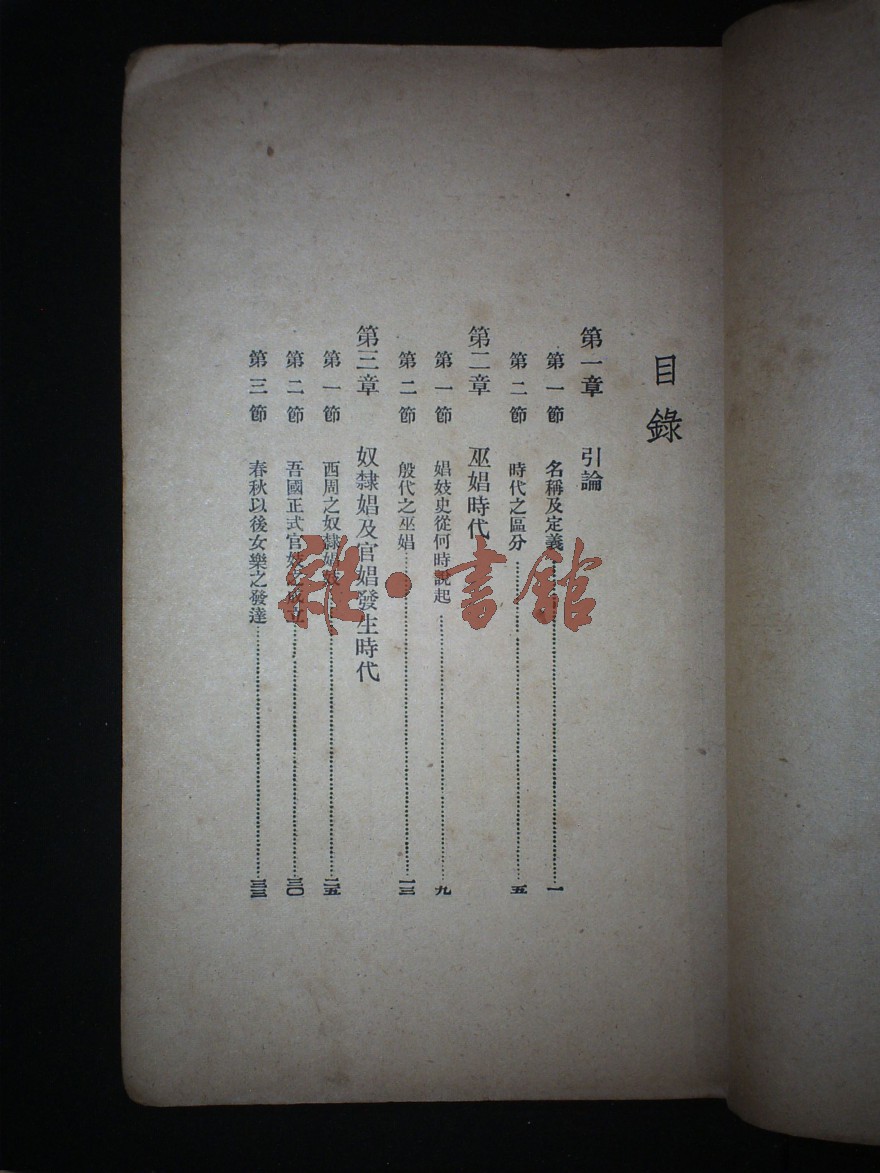 目錄
第一章 引論
第一節 名稱及定義……一
第二節 時代之區分……五
第二章 巫娼時代
第一節 娼妓史從何時說起……九
第二節 殷代之巫娼……一三
第三章 奴隸娼及官娼發生時代
第一節 西周之奴隸娼妓……二五
第二節 吾國正式官妓之成立……三〇
第三節 春秋以後女樂之發達……三三
雜·書館